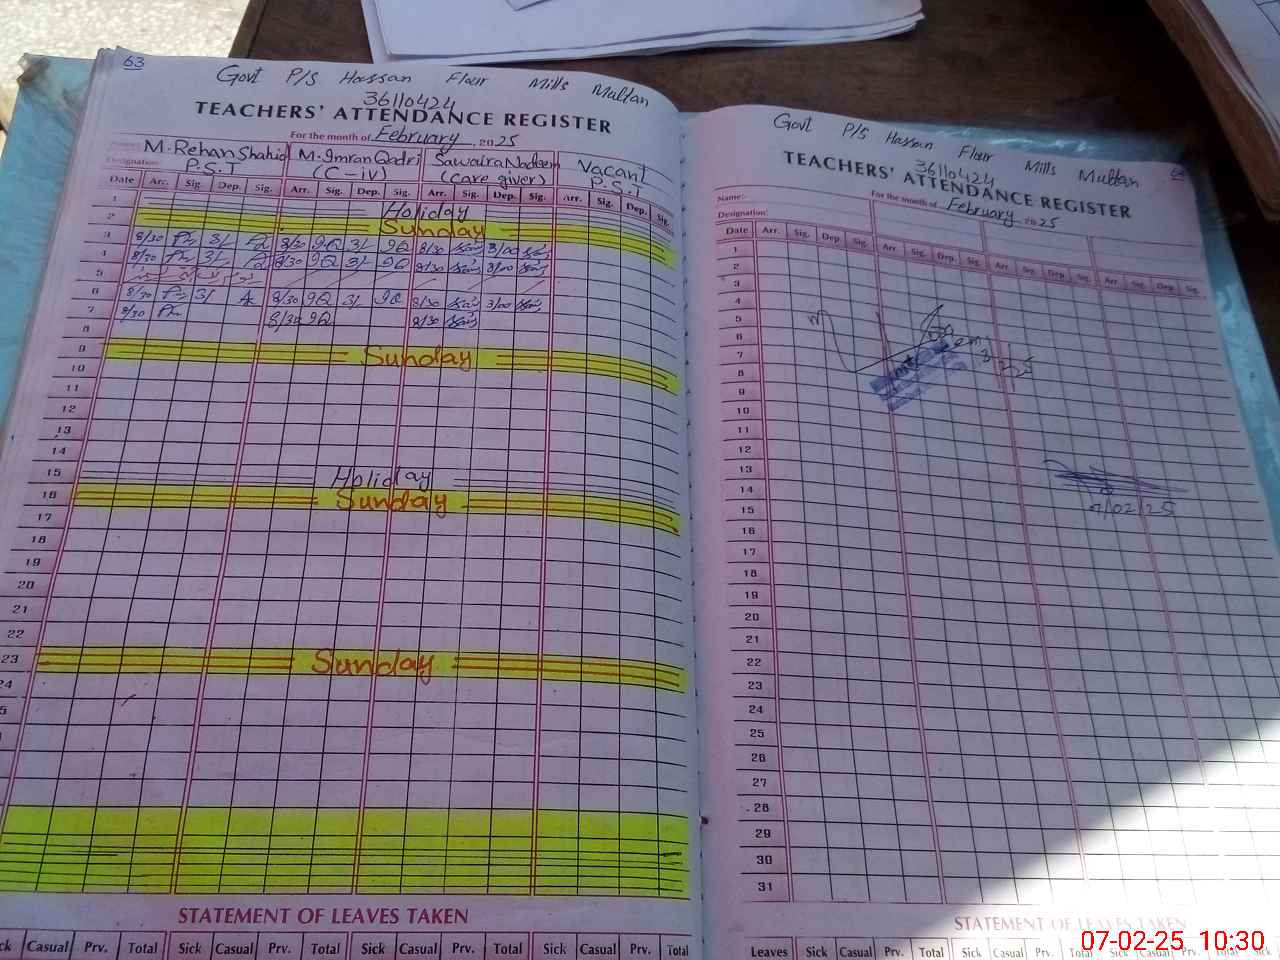 63
Govt P/S Hassan Flour Mills Multan
36110424
TEACHERS' ATTENDANCE REGISTER
For the month of February 2025
Name:- M.Rehan Shahid M.Imran Qadri Sawaira Nadeem Vacant
Designation: P.S.T (C-iv) (Care giver) P.S.T
Date Arr. Sig. Dep. Sig. Arr. Sig. Dep. Sig. Arr. Sig. Dep. Sig. Arr. Sig. Dep. Sig.
1 Holiday
2 Sunday
3 8/30 3/- 8/30 3/- 8/30 3/00
4 8/30 3/- 8/30 3/- 8/30 3/00
5
6 8/30 3/ 8/30 3/ 8/30 3/00
7 8/30 8/30 8/30
8
9 Sunday
10
11
12
13
14
15 Holiday
16 Sunday
17
18
19
20
21
22
23 Sunday
24
STATEMENT OF LEAVES TAKEN
Casual Prv. Total Sick Casual Prv. Total Sick Casual Prv. Total Sick Casual Prv. Total
Govt P/S Hassan Flour Mills Multan
36110424
TEACHERS' ATTENDANCE REGISTER
For the month of February 2025
Name:-
Designation:
Date Arr. Sig. Dep. Sig. Arr. Sig. Dep. Sig. Arr. Sig. Dep. Sig. Arr. Sig. Dep. Sig.
1
2
3
4
5
6
7
8
9
10
11
12
13
14
15
16
17
18
19
20
21
22
23
24
25
26
27
28
29
30
31
STATEMENT OF LEAVES TAKEN
Leaves Sick Casual Prv. Total Sick Casual Prv. Total Sick Casual Prv. Total Sick
07-02-25 10:30